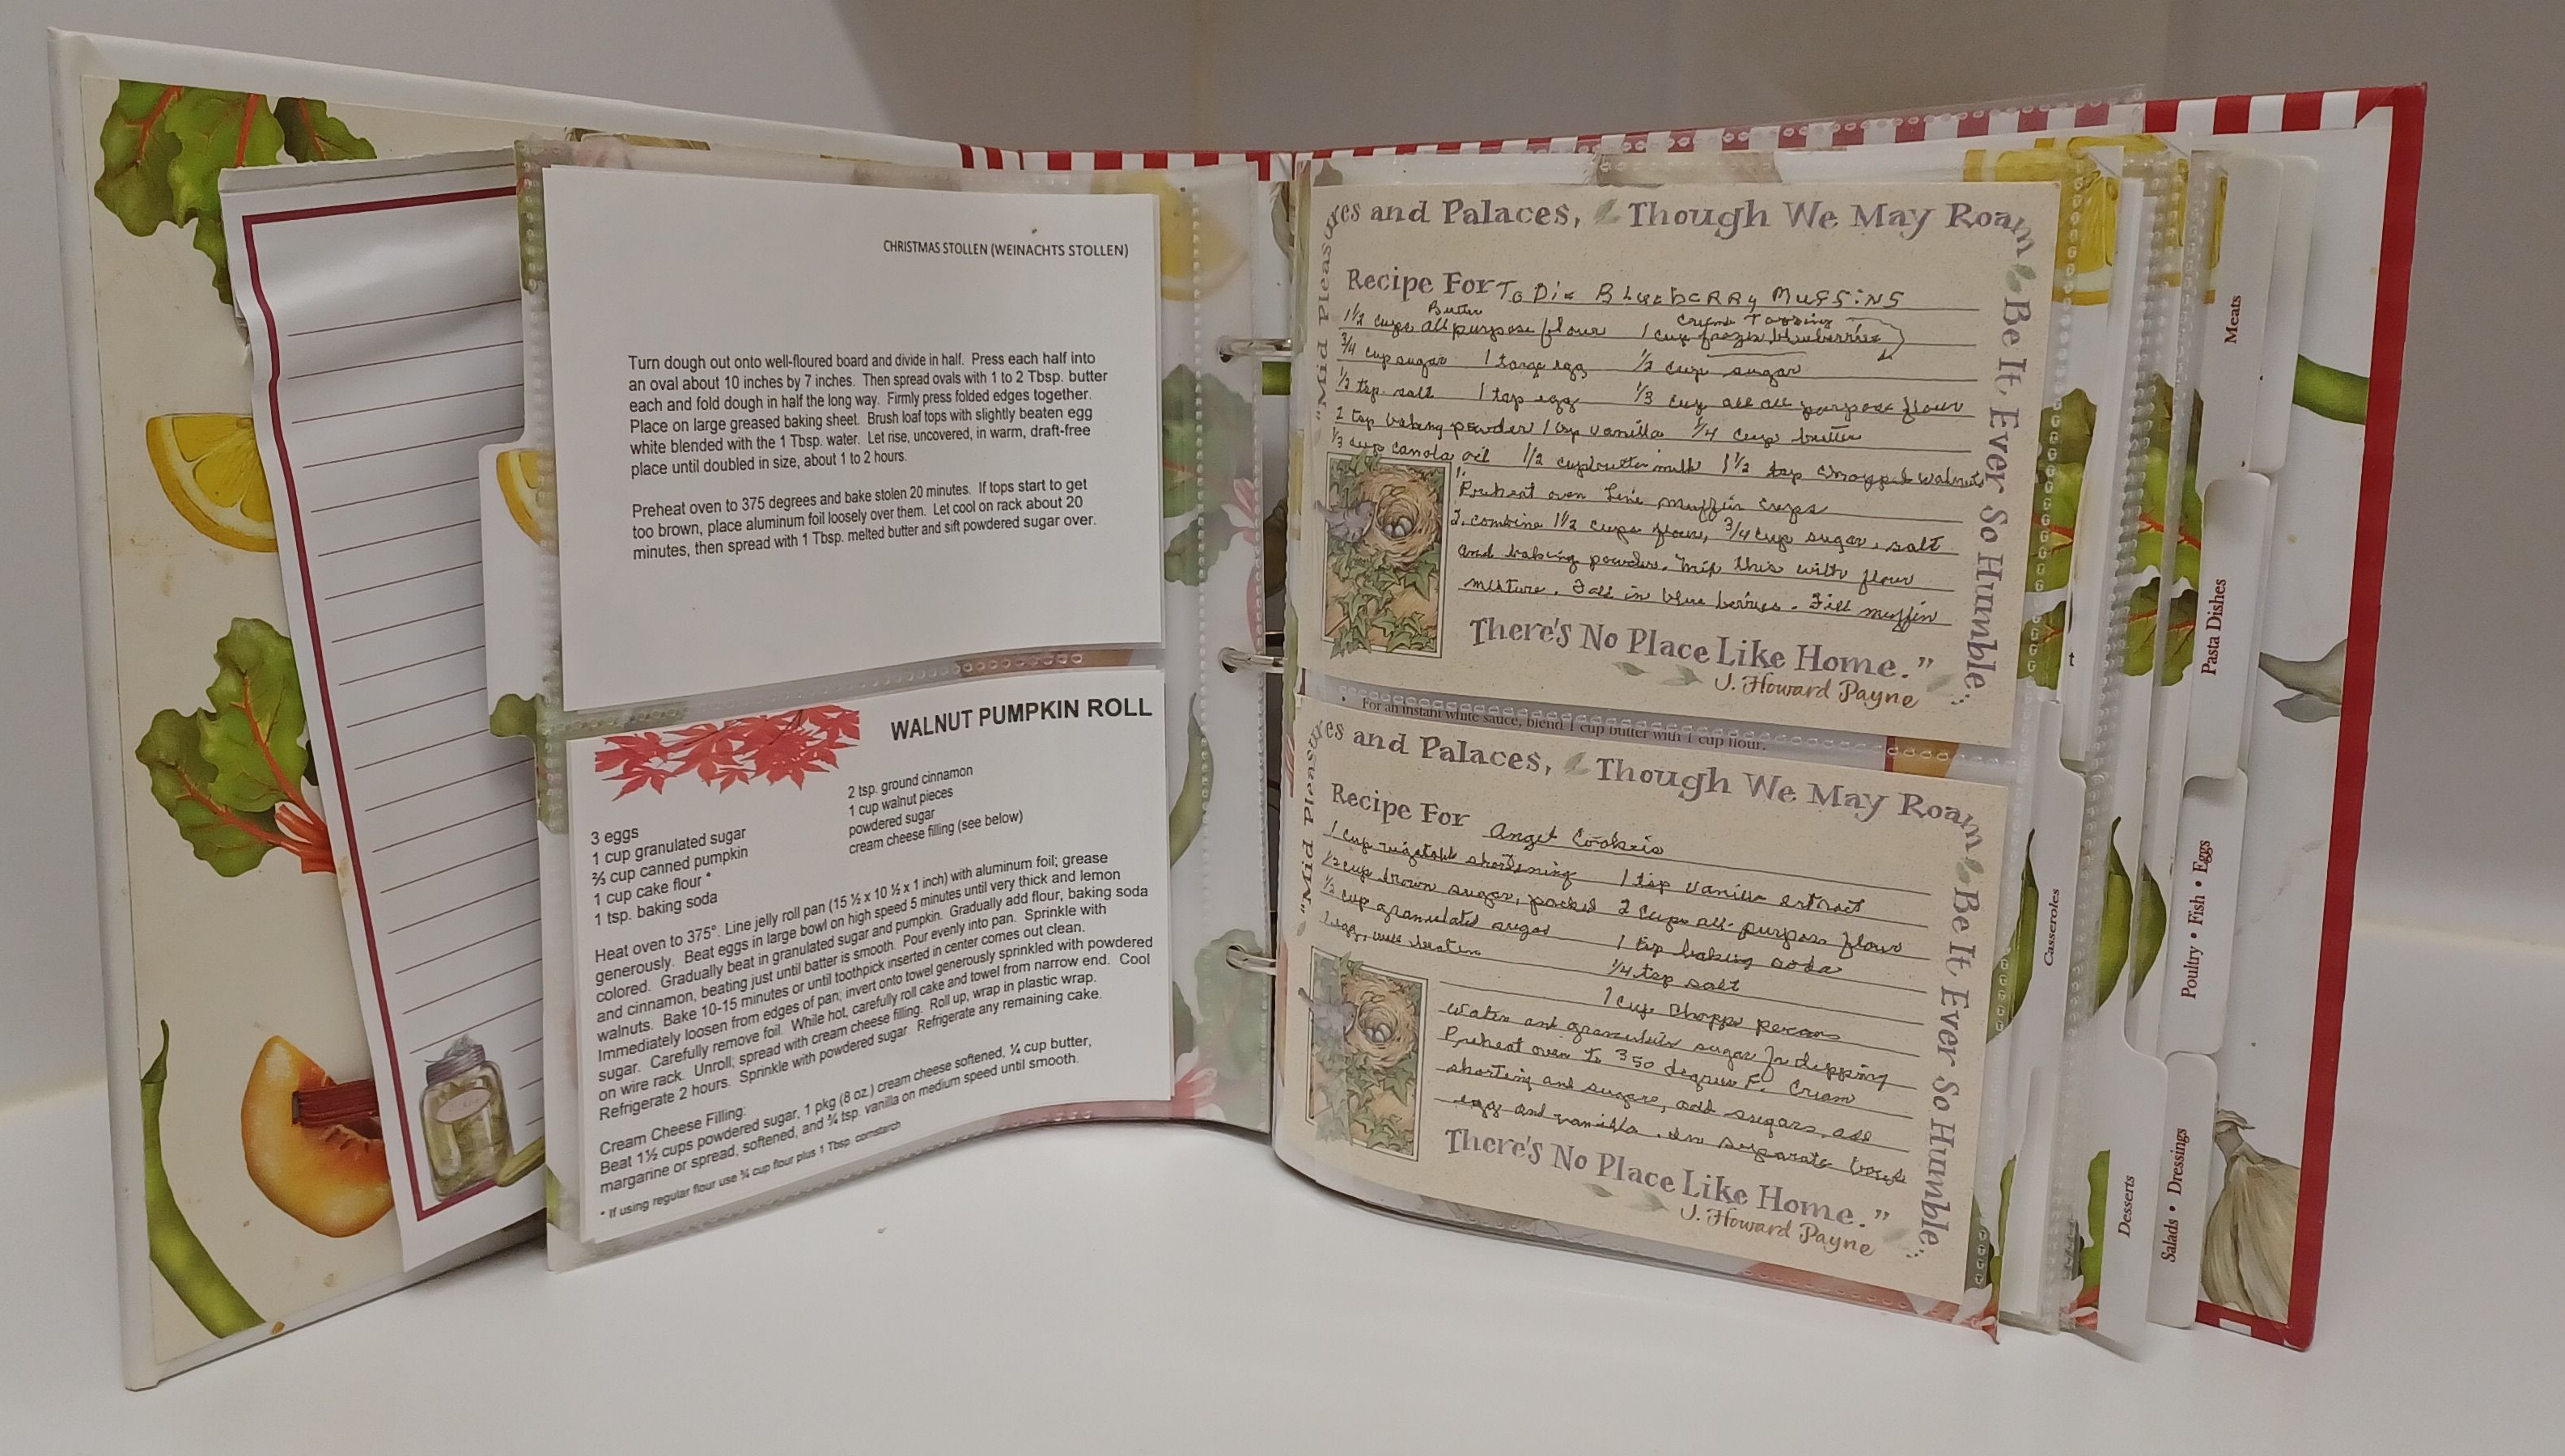 CHRISTMAS STOLLEN (WEINACHTS STOLLEN)
Turn dough out onto well-floured board and divide in half. Press each half into
an oval about 10 inches by 7 inches. Then spread ovals with 1 to 2 Tbsp. butter
each and fold dough in half the long way. Firmly press folded edges together.
Place on large greased baking sheet. Brush loaf tops with slightly beaten egg
white blended with the 1 Tbsp. water. Let rise, uncovered, in warm, draft-free
place until doubled in size, about 1 to 2 hours.
Preheat oven to 375 degrees and bake stolen 20 minutes. If tops start to get
too brown, place aluminum foil loosely over them. Let cool on rack about 20
minutes, then spread with 1 Tbsp. melted butter and sift powdered sugar over.
WALNUT PUMPKIN ROLL
3 eggs
1 cup granulated sugar
⅔ cup canned pumpkin
1 cup cake flour *
1 tsp. baking soda
2 tsp. ground cinnamon
1 cup walnut pieces
powdered sugar
cream cheese filling (see below)
Heat oven to 375°. Line jelly roll pan (15 ½ x 10 ½ x 1 inch) with aluminum foil; grease
generously. Beat eggs in large bowl on high speed 5 minutes until very thick and lemon
colored. Gradually beat in granulated sugar and pumpkin. Gradually add flour, baking soda
and cinnamon, beating just until batter is smooth. Pour evenly into pan. Sprinkle with
walnuts. Bake 10-15 minutes or until toothpick inserted in center comes out clean.
Immediately loosen from edges of pan; invert onto towel generously sprinkled with powdered
sugar. Carefully remove foil. While hot, carefully roll cake and towel from narrow end. Cool
on wire rack. Unroll; spread with cream cheese filling. Roll up, wrap in plastic wrap.
Refrigerate 2 hours. Sprinkle with powdered sugar Refrigerate any remaining cake.
Cream Cheese Filling:
Beat 1½ cups powdered sugar, 1 pkg (8 oz.) cream cheese softened, ¼ cup butter,
margarine or spread, softened, and ¾ tsp. vanilla on medium speed until smooth.
* If using regular flour use ¾ cup flour plus 1 Tbsp cornstarch
"Mid Pleasures and Palaces, Though We May Roam
Be It Ever So Humble...
Recipe For To Die Blueberry Muffins
Butter
1 1/2 cups all purpose flour 1 cup frozen blueberries
3/4 cup sugar 1 large egg 1/2 cup sugar
1/2 tsp salt 1 tsp egg 1/3 cup all all purpose flour
2 tsp baking powder 1 tsp vanilla 1/4 cup butter
1/3 cup canola oil 1/2 cup buttermilk 1 1/2 tsp walnuts
1. Preheat oven Line muffin cups
2. combine 1 1/2 cups flour, 3/4 cup sugar, salt
and baking powder. Mix this with flour
mixture. Fold in blue berries. Fill muffin
There's No Place Like Home."
J. Howard Payne
For an instant white sauce, blend 1 cup butter with 1 cup flour.
"Mid Pleasures and Palaces, Though We May Roam
Be It Ever So Humble...
Recipe For Angel Cookies
1 cup vegetable shortening 1 tsp vanilla extract
1/2 cup brown sugar, packed 2 cups all-purpose flour
1/2 cup granulated sugar 1 tsp baking soda
1 egg, well beaten 1/4 tsp salt
1 cup chopp pecans
Water and granulated sugar for dipping
Preheat oven to 350 degrees F. Cream
shorting and sugar, add sugars, add
egg and vanilla. In separate bowl
There's No Place Like Home."
J. Howard Payne
t
Casseroles
Desserts
Meats
Pasta Dishes
Poultry • Fish • Eggs
Salads • Dressings